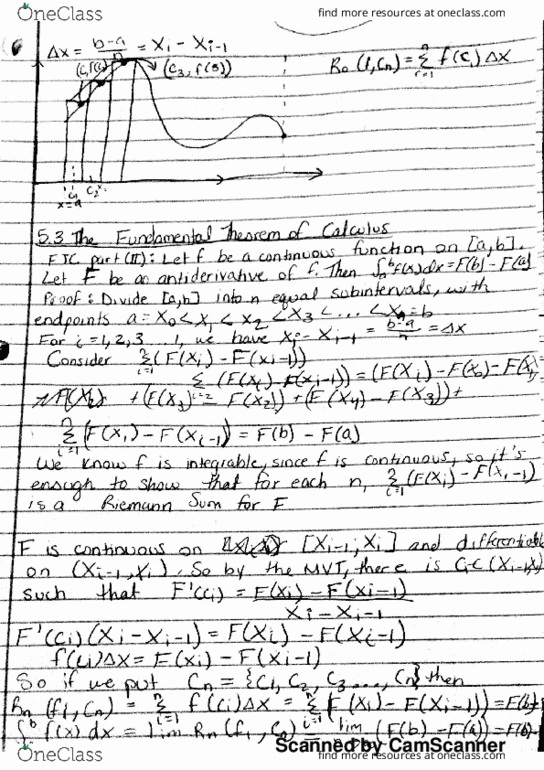 OneClass
find more resources at oneclass.com
Δx = b-a/n = Xi - Xi-1
(c3, f(3))
Rn (f, Cn) = Σ f(ci) Δx
i=1
C1 C2
x=a
5.3 The Fundamental Theorem of Calculus
FTC part (II): Let f be a continuous function on [a,b].
Let F be an antiderivative of f. Then ∫ f(x)dx = F(b) - F(a)
Proof: Divide [a,b] into n equal subintervals, with
endpoints a = x0 < x1 < x2 < x3 < ... < xn = b
For i = 1, 2, 3 ... , we have Xi - Xi-1 = b-a/n = Δx
Consider Σ (F(Xi) - F(Xi-1))
Σ (F(Xi) - F(Xi-1)) = (F(Xi) - F(X0) - F(X
F(X2) + (F(X3) - F(X2)) + (F(X4) - F(X3)) +
Σ (F(Xi) - F(Xi-1) = F(b) - F(a)
We know f is integrable, since f is continuous, so it's
enough to show that for each n, Σ (F(Xi) - F(Xi-1)
is a Riemann Sum for F
F is continuous on [Xi-1, Xi] and differentiable
on (Xi-1, Xi). So by the MVT, there is Ci ∈ (Xi-1, Xi)
such that F'(ci) = F(Xi) - F(Xi-1)
Xi - Xi-1
F'(ci)(Xi - Xi-1) = F(Xi) - F(Xi-1)
f(ci)Δx = F(Xi) - F(Xi-1)
So if we put Cn = {C1, C2, C3..., Cn} then
Rn (f, Cn) = Σ f(ci)Δx = Σ F(Xi) - F(Xi-1)) = F(b)
∫ f(x) dx = lim Rn (f, Cn) = lim (F(b) - F(a)) = F(b) -
Scanned by CamScanner
OneClass
find more resources at oneclass.com